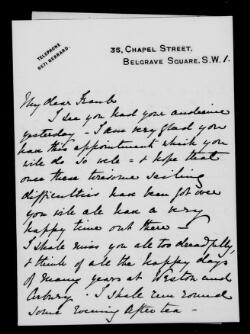 TELEPHONE
6671 GERRARD.
35, CHAPEL STREET,
BELGRAVE SQUARE, S.W.1.
My dear Frank
I see you had your audience
yesterday - I am very glad you
have this appointment which you
will do so well - & hope that
once these tiresome sailing
difficulties have been got over
you will all have a very
happy time out there -
I shall miss you all too dreadfully
& think of all the happy days
of many years at Weston and
Arbury. I shall run round
some evening after tea -